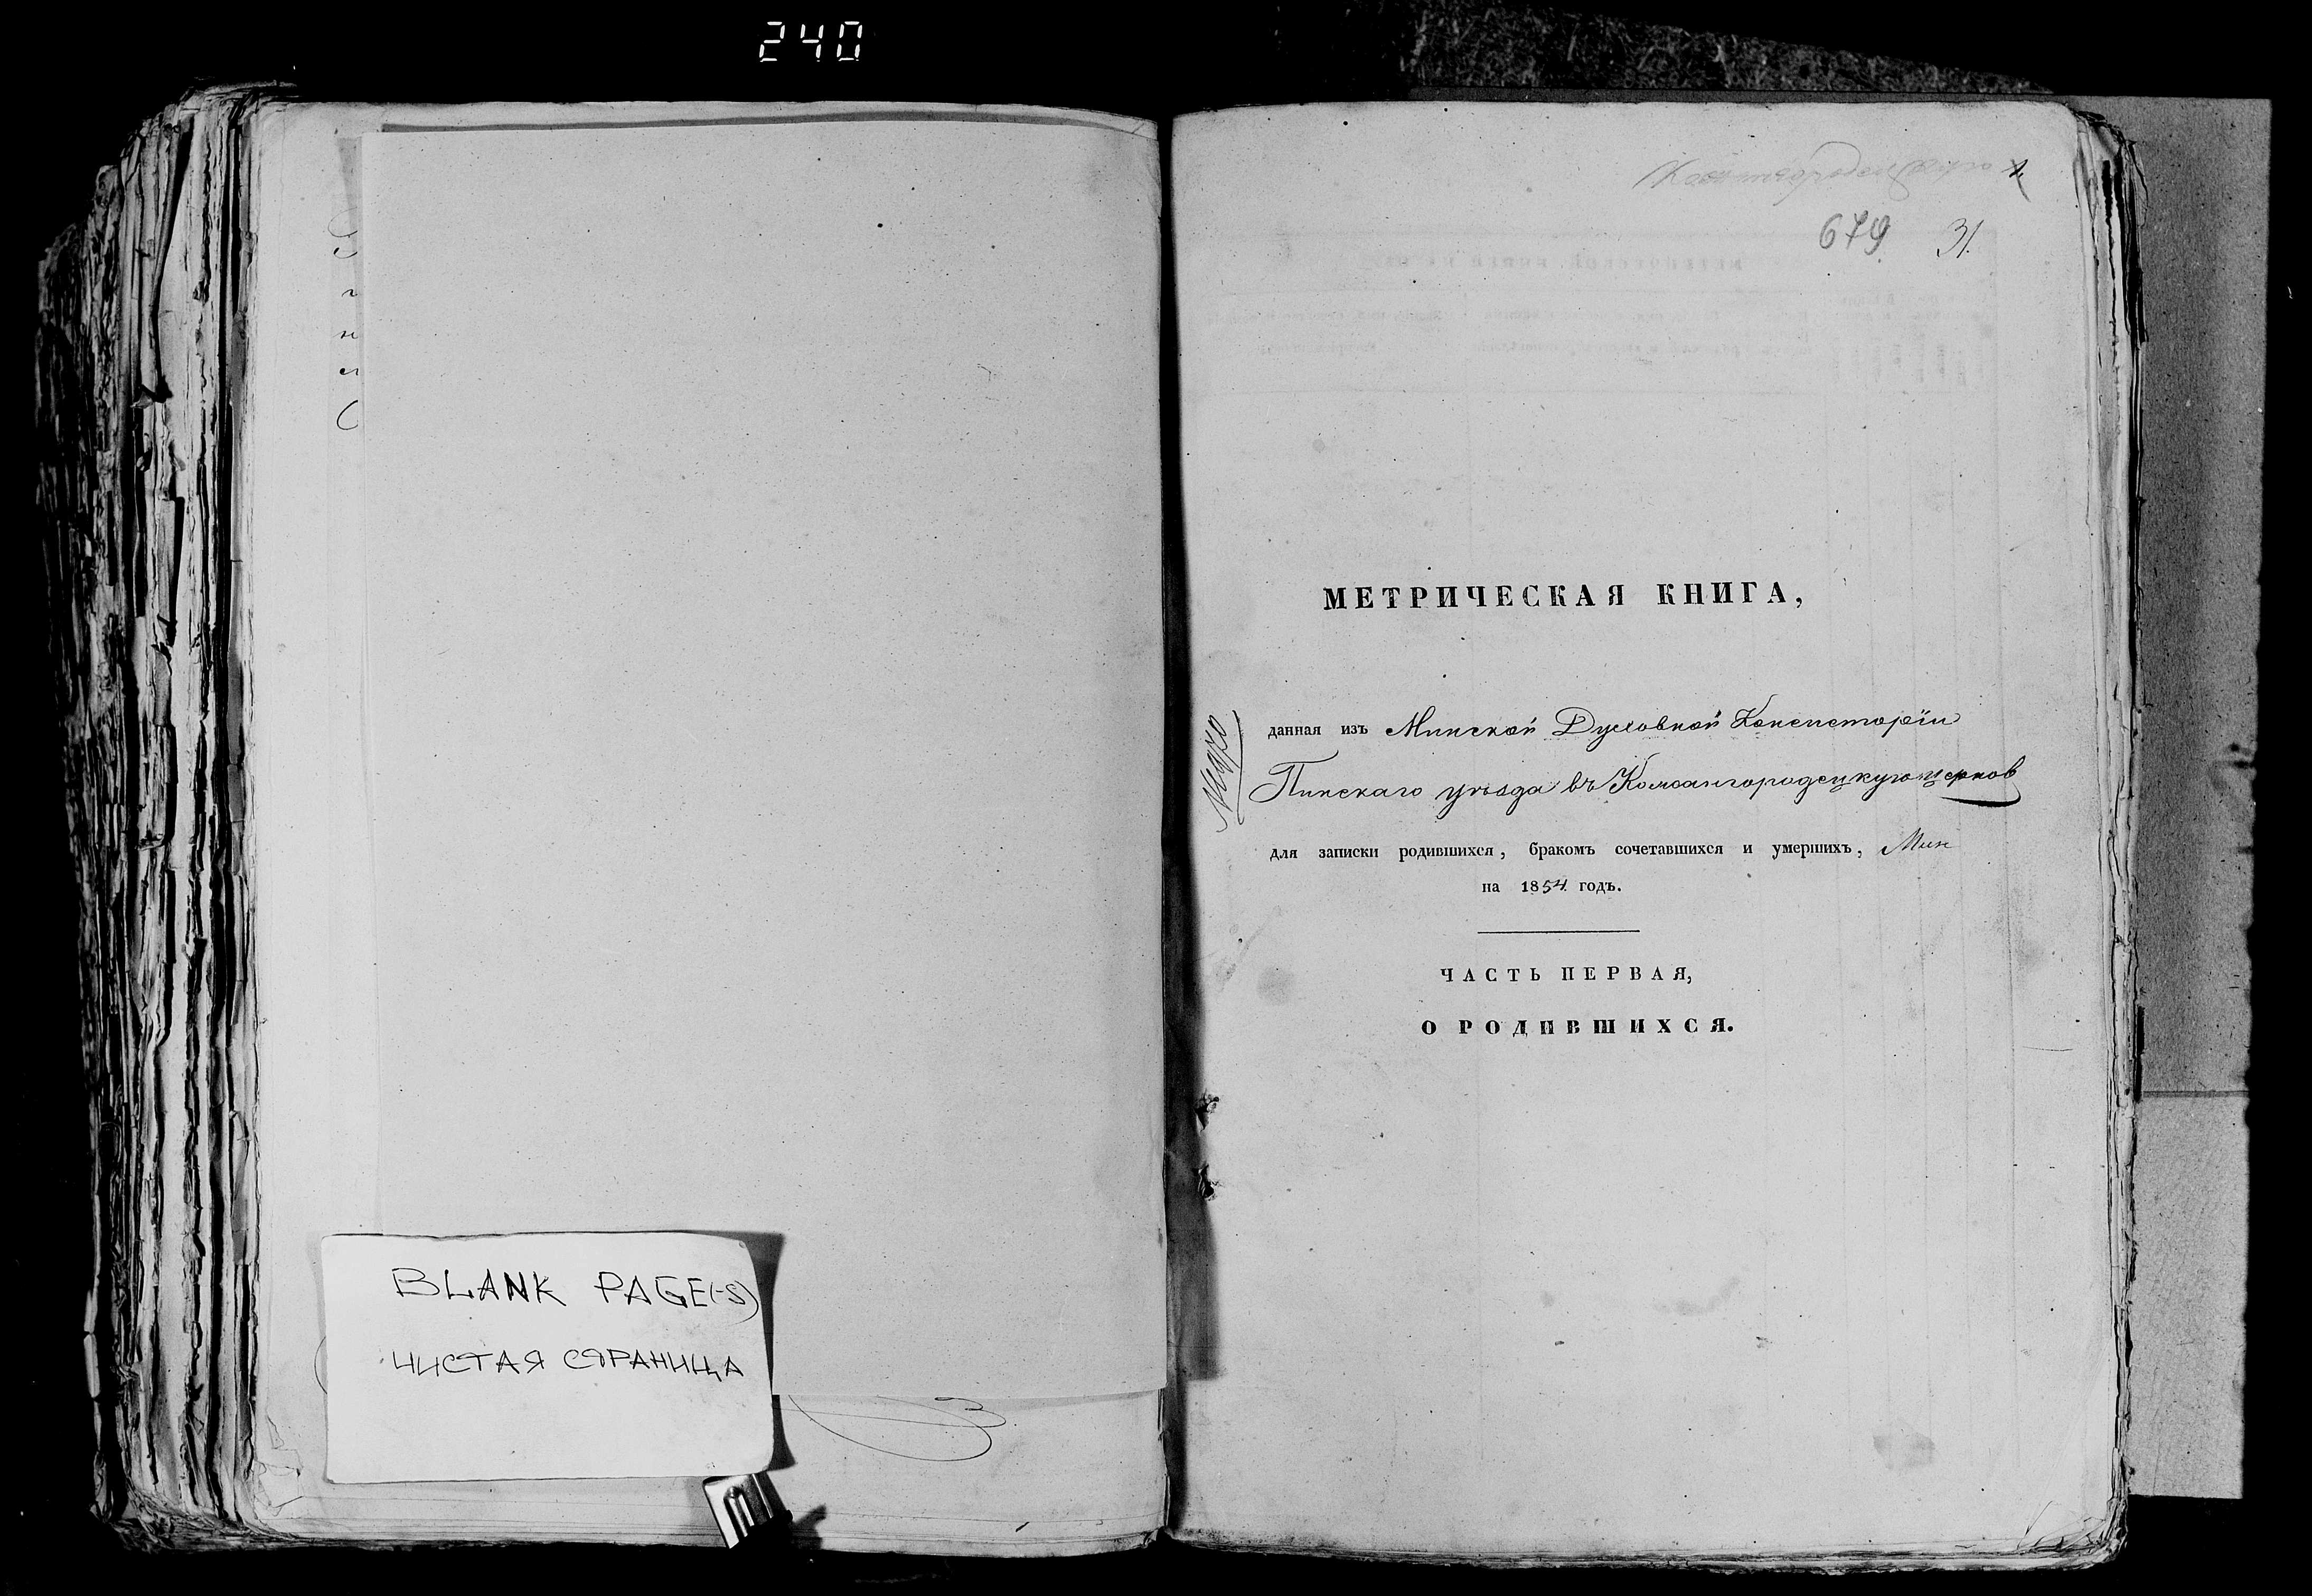 240
BLANK PAGE(-S)
ЧИСТАЯ СТРАНИЦА
679 31.
МЕТРИЧЕСКАЯ КНИГА,
данная изъ Минской Духовной Консисторіи
Пинскаго уѣзда въ Кожангородецкую церков
для записки родившихся, бракомъ сочетавшихся и умершихъ, Мин
на 1854 годъ.
ЧАСТЬ ПЕРВАЯ,
О РОДИВШИХСЯ.